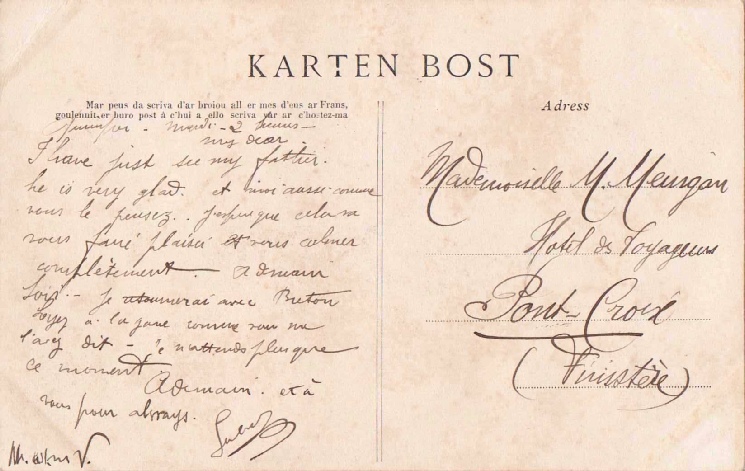 KARTEN BOST
Mar peus da scriva d'ar broiou all er mes d'eus ar Frans,
goulennit er buro post à c'hui a ello scriva var ar c'hostez-ma
Adress
mardi - 2 heures -
my dear.
I have just see my father.
he is very glad. et moi aussi comme
vous le pensez. J'espère que cela va
vous faire plaisir et vous calmer
complètement - A demain
soir - Je avec Breton
Soyez à la gare comme vous me
l'avez dit - Je n'attends plus que
ce moment
A demain. et à
vous pour always.
Mademoiselle M. Meurgan
Hotel des Voyageurs
Pont-Croix
(Finistère)